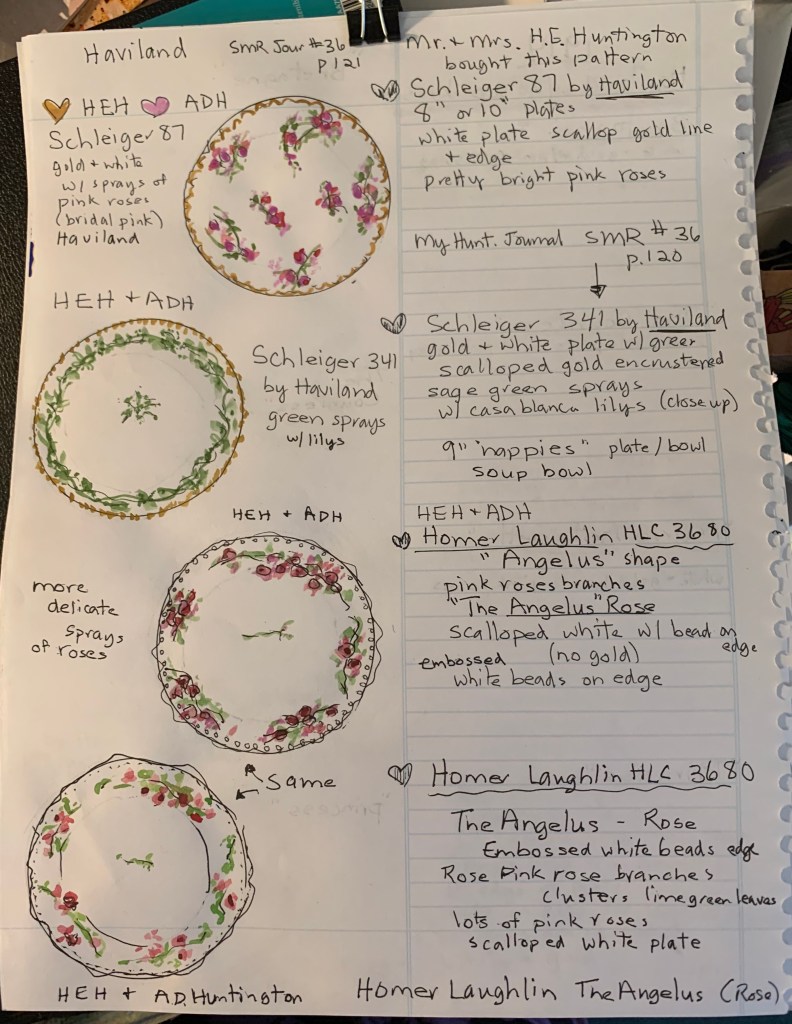 Haviland
SMR Jour #36
p. 121
HEH ADH
Schleiger 87
gold + white
w/ sprays of
pink roses
(bridal pink)
Haviland
Mr. + Mrs. H.E. Huntington
bought this pattern
Schleiger 87 by Haviland
8" or 10" plates
white plate scallop gold line
+ edge
pretty bright pink roses
My Hunt. Journal SMR #36
p. 120
HEH + ADH
Schleiger 341
by Haviland
green sprays
w/ lilys
Schleiger 341 by Haviland
gold + white plate w/ green
scalloped gold encrustered
sage green sprays
w/ casablanca lilys (close up)
9" "nappies" plate/bowl
soup bowl
HEH + ADH
more
delicate
sprays
of roses
HEH + ADH
Homer Laughlin HLC 3680
"Angelus" shape
pink roses branches
"The Angelus" Rose
scalloped white w/ bead on
edge
embossed (no gold)
white beads on edge
Same
Homer Laughlin HLC 3680
The Angelus - Rose
Embossed white beads edge
Rose Pink rose branches
clusters lime green leaves
lots of pink roses
scalloped white plate
HEH + AD. Huntington
Homer Laughlin The Angelus (Rose)